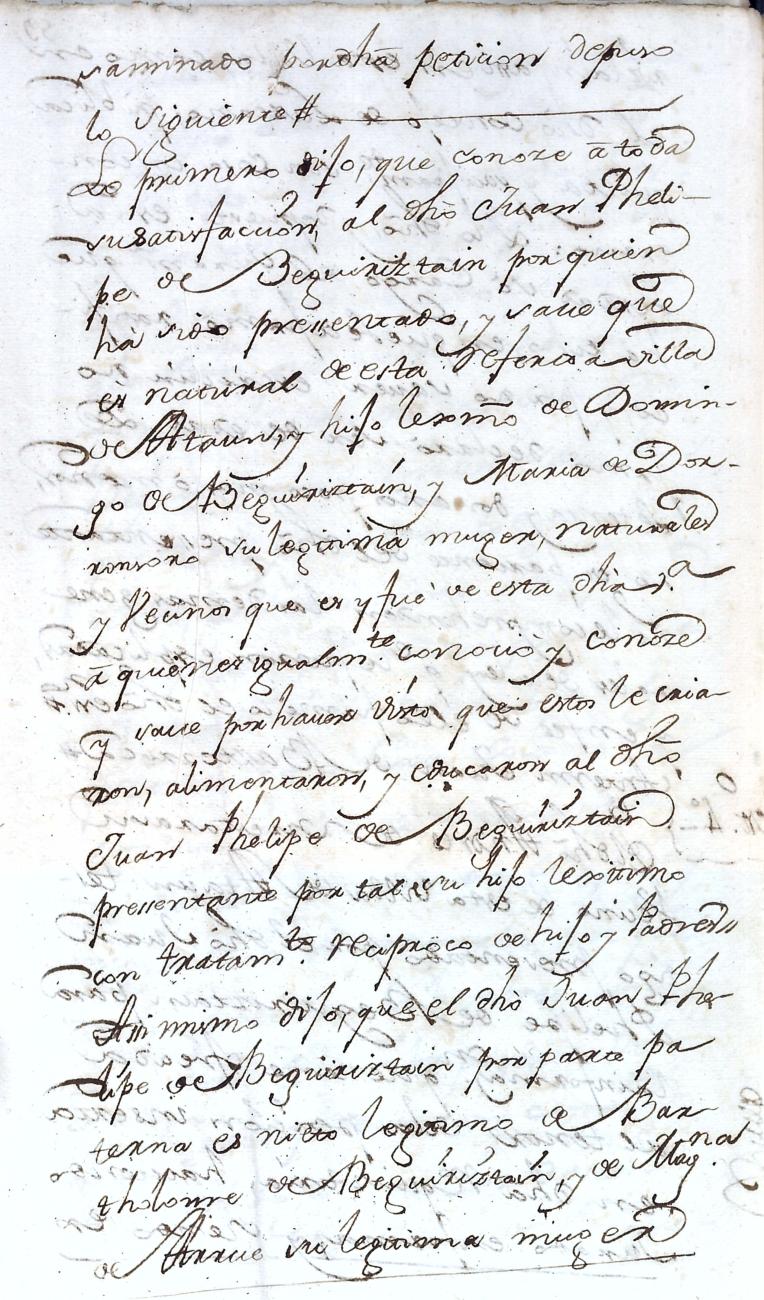 saminado por dha peticion depuso
lo siguiente #
Lo primero dijo, que conoze a toda
su satisfaccion, al dho Juan Pheli-
pe de Beguiriztain por quien
ha sido presentado, y save que
es natural de esta referida villa
de Ataun, y hijo lexmo de Domin-
go de Beguiriztain, y Maria de Dor-
ronsoro su legitima muger, naturales
y Vecinos que es y fue de esta dha va
a quienes igualmte conocio y conoze
y save por haver visto que estos le cria-
ron, alimentaron, y educaron al dho
Juan Phelipe de Beguiriztain
presentante por tal su hijo lexitimo
con tratamto reciproco de hijo y Padres
Assimismo dijo, que el dho Juan Phe-
lipe de Beguiriztain por parte pa
terna es nieto legitimo de Bar-
tholome de Beguiriztain, y de Magna
de Arrue su legitima muger